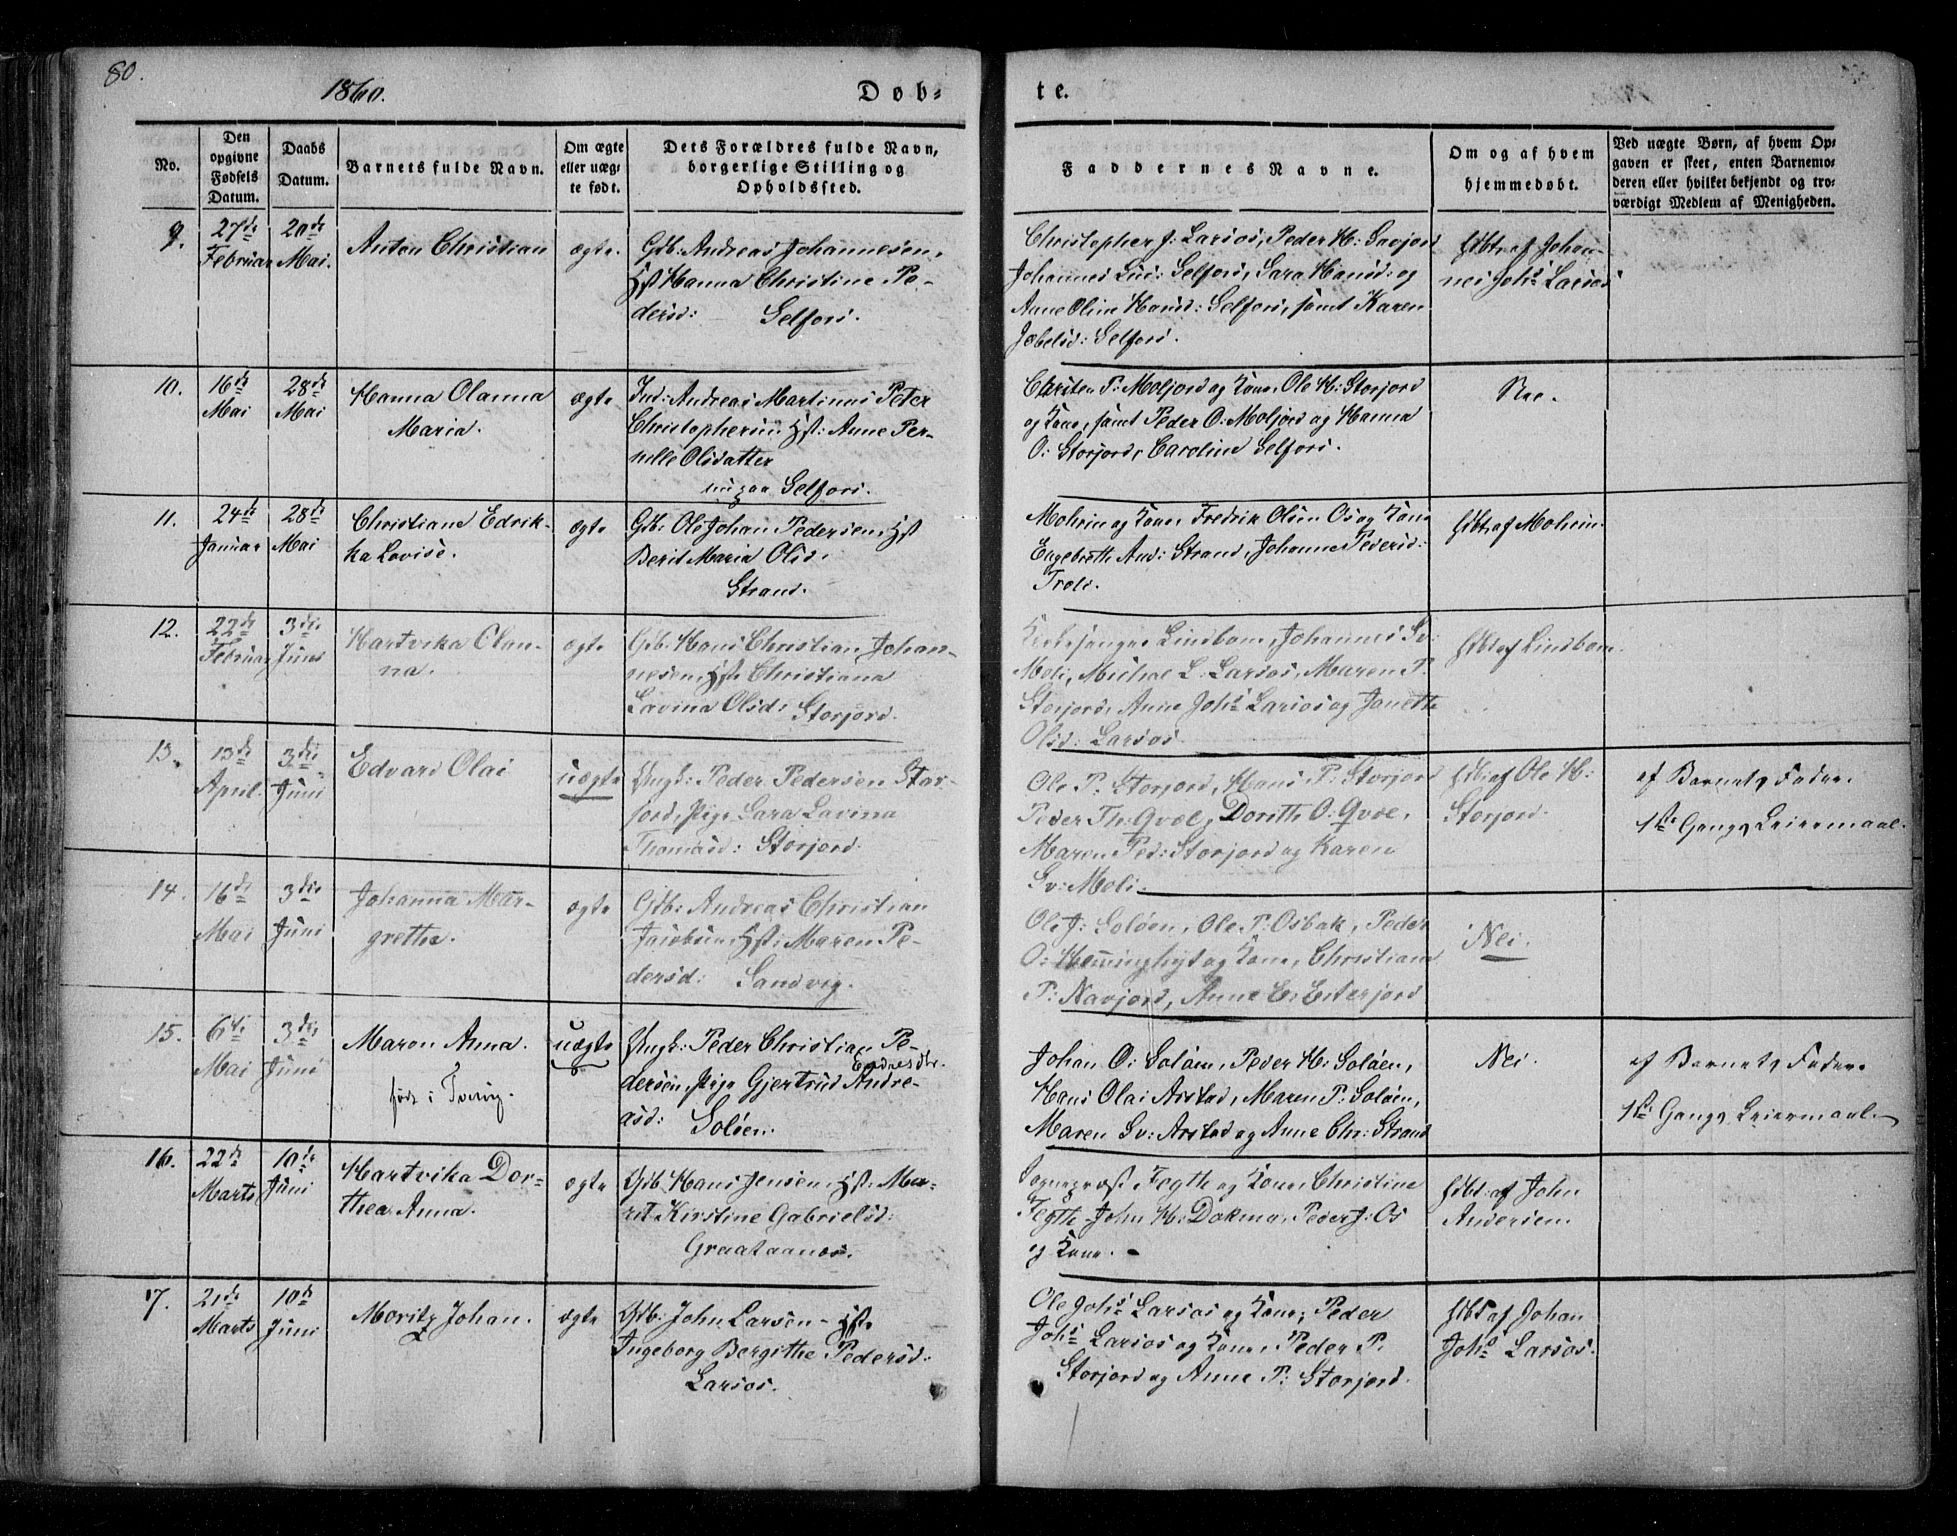 80.
1860.
Døb-
te.
No.
Den opgivne Fødsels Datum.
Daabs Datum.
Barnets fulde Navn.
Om ægte eller uæg- te født.
Dets Forældres fulde Navn, borgerlige Stilling og Opholdssted.
Faddernes Navne.
Om og af hvem hjemmedøbt.
Ved uægte Børn, af hvem Op- gaven er skeet, enten Barnemo- deren eller hvilket bekjendt og tro- værdigt Medlem af Menigheden.
9.
27de Februar
20de Mai.
Anton Christian
ægte.
Gdb: Andreas Johannesen,
Hst Hanna Christine Pe-
dersd: Selfors.
Christopher J: Larsos, Peder H: Gavjord
Johannes Lud: Selfors, Sara Hansd: og
Anne Oline Hansd: Selfors, samt Karen
Jobelsd: Selfors.
hdbt af Johan-
nes Johs Larsos
10.
16de Mai
28de Mai
Hanna Olanna
Maria.
ægte
Ind: Andreas Martinus Peter
Christophersen, Hst: Anne Per-
nelle Olsdatter
Selfors.
Christen P: Moljord og Kone, Ole H: Storjord
og Kone, samt Peder O: Moljord og Hanna
O: Storjord, Caroline Selfors.
Nei.
11.
24de Januar
28de Mai
Christiane Edrik-
ka Lovise.
ægte
Gdb: Ole Johan Pedersen, Hst
Berit Maria Olsd:
Strand.
Mohrin og Kone, Fredrik Olsen Os og Kone
Engebrethe And: Strand, Johannes Pedersd:
Trols.
hdbt af Mohrin.
12.
22de Februar
3die Juni
Hartvika Olan-
na.
ægte
Gdb: Hans Christian Johan-
nesen, Hst: Christiana
Lavina Olsd: Storjord.
Kirkesanger Lindbom, Johannes Sv:
Moli, Michal L: Larsos, Maren P:
Storjord, Anne Johs Larsos og Janethe
Olsd: Larsos.
hdbt af Lindbom.
13.
13de April.
3die Juni
Edvard Olai
uægte
Ungk: Peder Pedersen Stor-
jord, Pige Sara Lavina
Thomasd: Storjord.
Ole P: Storjord, Hans P: Storjord
Peder Th: Qvæl, Dorethe O: Qvæl,
Maren Ped: Storjord og Karen
Sv: Moli.
hdbt af Ole H:
Storjord.
af Barnets Fader.
1ste Gangs Leiermaal.
14.
16de Mai
3die Juni
Johanna Mar-
grethe.
ægte
Gdb: Andreas Christian
Jacobsen, Hst: Maren Pe-
dersd: Sandvig.
Ole J: Soløen, Ole P: Osbak, Peder
O: Hemminghyt og Kone, Christiane
P: Navjord, Anne E: Esterjord
Nei.
15.
6te Mai
3die Juni
Maren Anna.
født i Tverrvig.
uægte
Ungk: Peder Christian Pe-
dersen, Pige Gjertrud Andre-
Endresdtr.
asd: Soløen.
Johan O: Soløen, Peder H: Soløen,
Hans Olai Arstad, Maren P: Soløen,
Maren Sv: Arstad og Anne Chr: Strand
Nei
af Barnets Fader.
1ste Gangs Leiermaal.
16.
22de Marts
10de Juni
Hartvika Dor-
thea Anna.
ægte
Gdb. Hans Jensen, Hst: Ma-
rit Kirstine Gabrielsd:
Graataanæs.
Sognepræst Fogth og Kone, Christine
Fogth, John H: Dokmo, Peder J: Os
og Kone.
hdbt: af John
Andersen.
17.
21de Marts
10de Juni
Moritz Johan.
ægte
Gdb: John Larsen - Hst.
Ingeborg Bergithe Pedersd:
Larsos.
Ole Johs Larsos og Kone, Peder
Johs Larsos og Kone, Peder P.
Storjord og Anne P: Storjord.
hdbt af Johan
Johs Larsos.